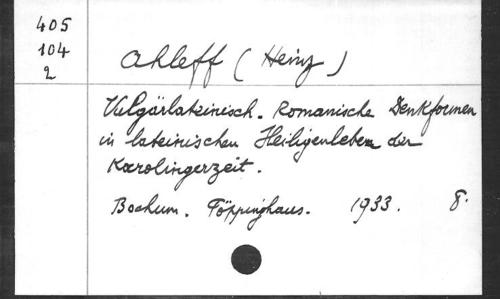 405
104
2
Ahleff (Heinz)
Vulgärlateinisch. Romanische Denkformen
in lateinischen Heiligenleben der
Karolingerzeit.
Bochum. Pöppinghaus. 1933. 8.